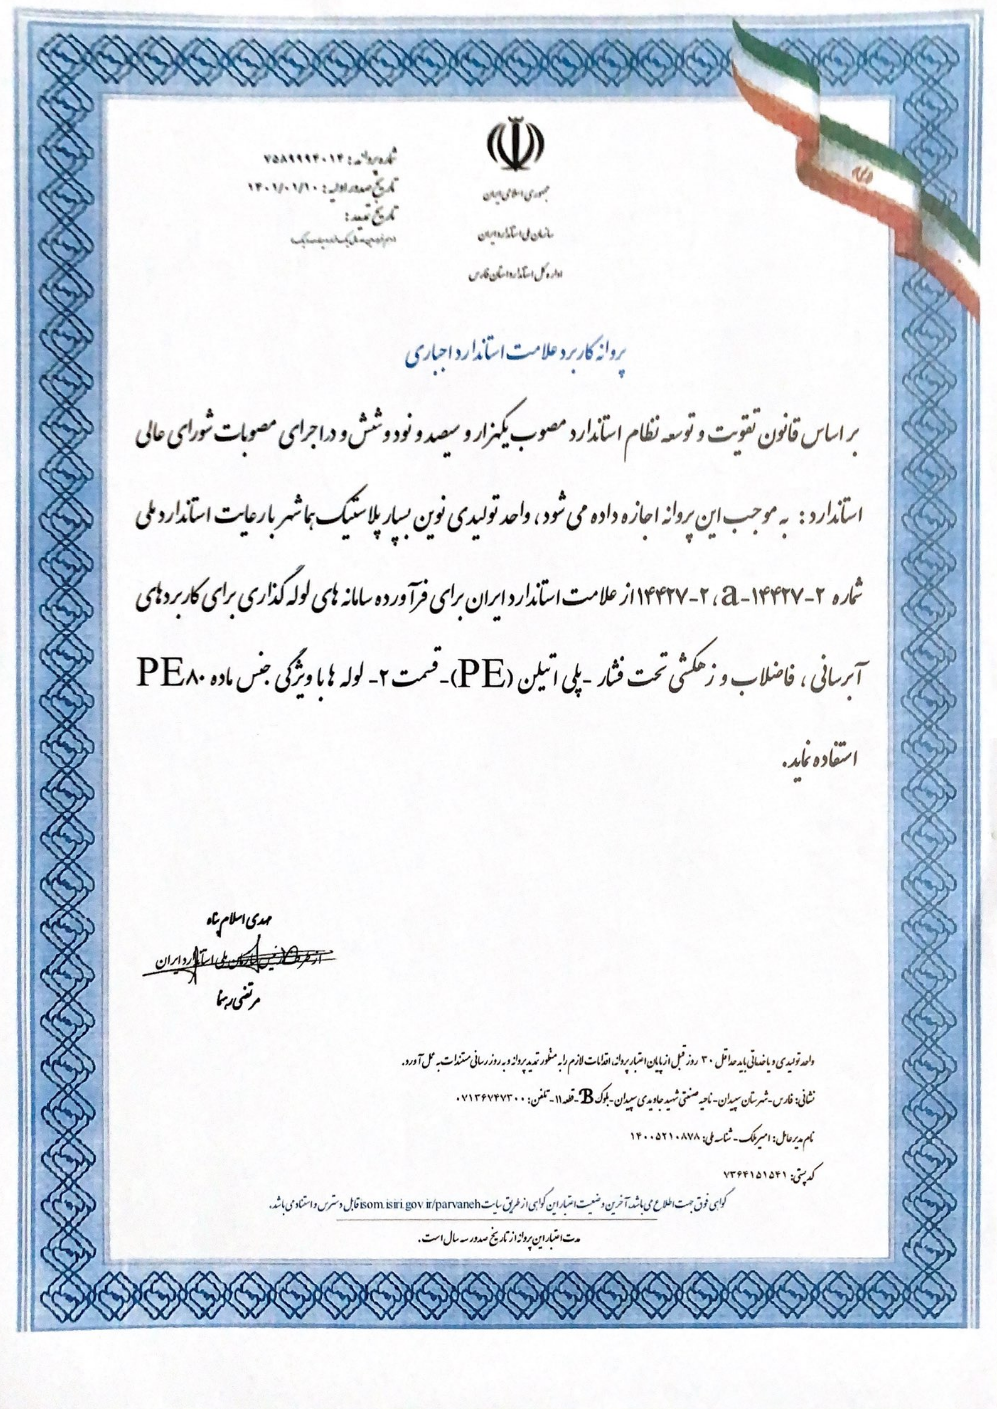 جمهوری اسلامی ایران
سازمان ملی استاندارد ایران
اداره کل استاندارد استان فارس
شماره پروانه: ۷۵۸۹۹۹۴۰۱۴
تاریخ صدور اولیه: ۱۴۰۱/۰۱/۱۰
تاریخ تمدید:
پروانه کاربرد علامت استاندارد اجباری
بر اساس قانون تقویت و توسعه نظام استاندارد مصوب یکهزار و سیصد و نود و شش و در اجرای مصوبات شورای عالی
استاندارد: به موجب این پروانه اجازه داده می شود، واحد تولیدی نوین بسپار پلاستیک هماشهر با رعایت استاندارد ملی
شماره ۲-۱۴۴۲۷-a، ۲-۱۴۴۲۷ از علامت استاندارد ایران برای فرآورده سامانه های لوله گذاری برای کاربردهای
آبرسانی، فاضلاب و زهکشی تحت فشار -پلی اتیلن (PE)- قسمت ۲- لوله ها با ویژگی جنس ماده PE۸۰
استفاده نماید.
مهدی اسلام پناه
از طرف رئیس سازمان ملی استاندارد ایران
مرتضی رهنما
واحد تولیدی و یا خدماتی باید حداقل ۳۰ روز قبل از پایان اعتبار پروانه، اقدامات لازم را به منظور تمدید پروانه و به روز رسانی مستندات به عمل آورد.
نشانی: فارس-شهرستان سپیدان- ناحیه صنعتی شهید جاویدی سپیدان- بلوک B- قطعه ۱۱- تلفن: ۰۷۱۳۶۷۴۷۳۰۰
نام مدیرعامل: امیر ملک - شناسه ملی: ۱۴۰۰۵۲۱۰۸۷۸
کد پستی: ۷۳۶۴۱۵۱۵۴۱
گواهی فوق جهت اطلاع می باشد، آخرین وضعیت اعتبار این گواهی از طریق سایت isom.isiri.gov.ir/parvaneh قابل دسترس و استناد می باشد.
مدت اعتبار این پروانه از تاریخ صدور سه سال است.